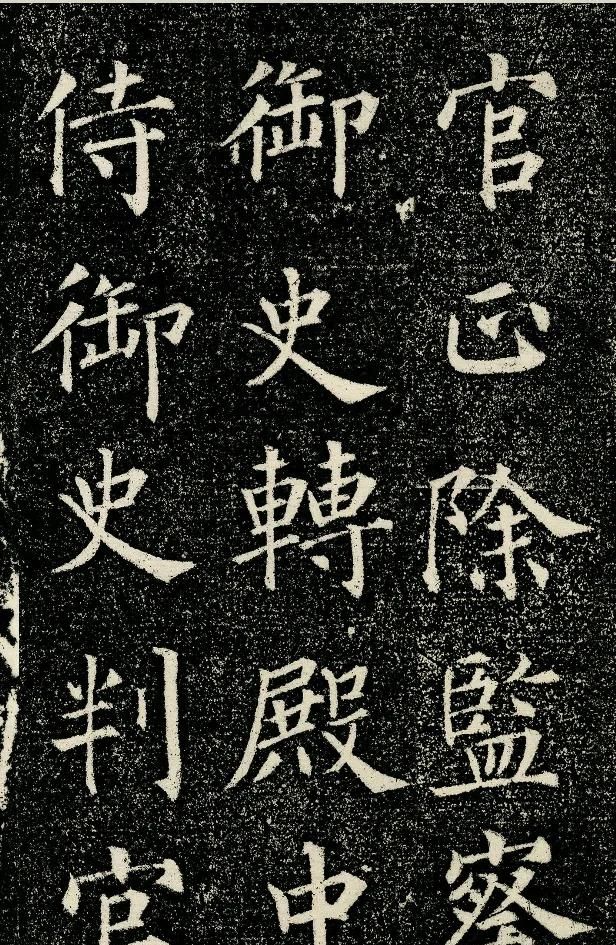 官正除監察
御史轉殿中
侍御史判官